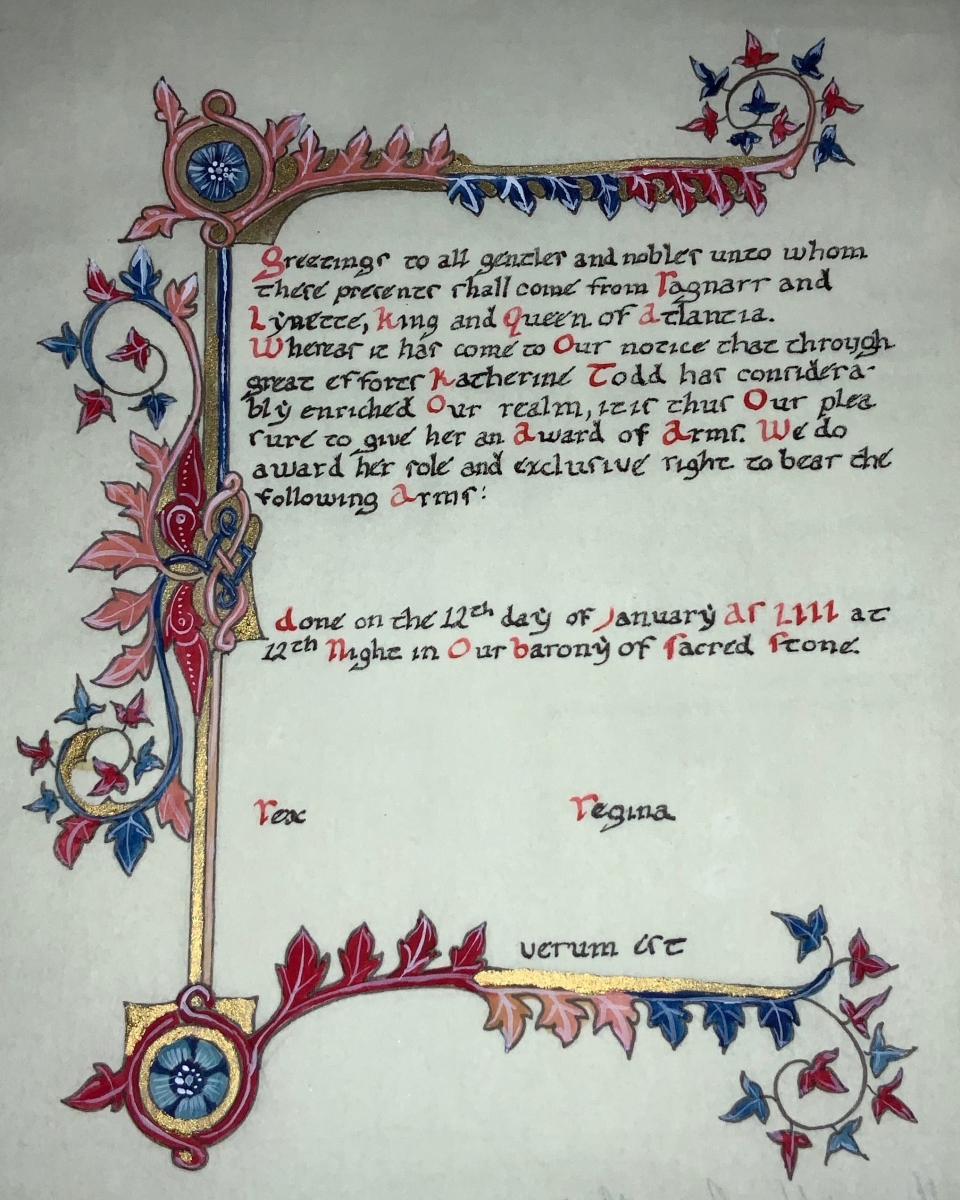 Greetings to all gentles and nobles unto whom
these presents shall come from Ragnarr and
Lynette, King and Queen of Atlantia.
Whereas it has come to Our notice that through
great efforts Katherine Todd has considera-
bly enriched Our realm, it is thus Our plea
sure to give her an Award of Arms. We do
award her sole and exclusive right to bear the
following Arms:
done on the 12th day of January AS LIII at
12th Night in Our barony of Sacred Stone.
Rex Regina
verum est